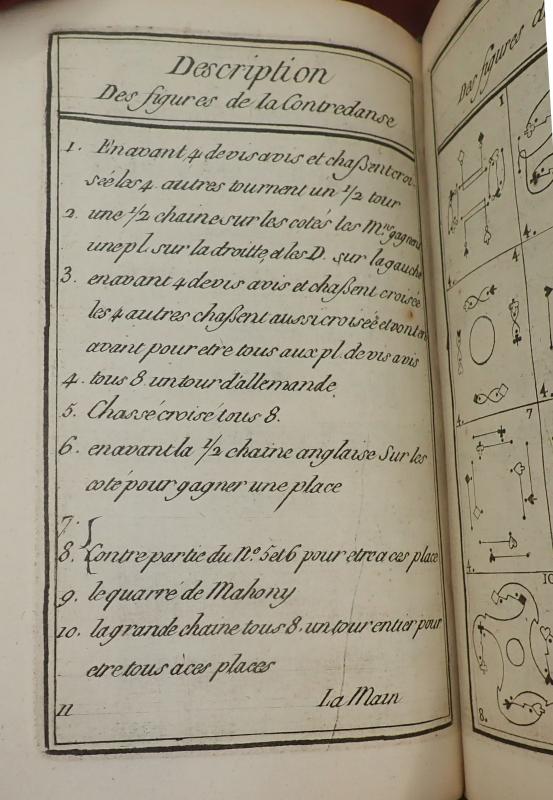 Description
Des figures de la Contredanse
1. En avant 4 de vis a vis et chaßent croi-
sée les 4 autres tournent un 1/2 tour
2. une 1/2 chaine sur les cotés les Mrs gagnent
une pl. sur la droitte, et les D. sur la gauche
3. en avant 4 de vis avis et chaßent croisée
les 4 autres chaßent aussi croisée et vont en
avant pour etre tous aux pl. de vis avis
4. tous 8. un tour d'allemande.
5. Chassé croisé tous 8.
6. en avant la 1/2 chaine anglaise Sur les
coté pour gagner une place
7.
8. Contre partie du No. 5 et 6 pour etre a ces place
9. le quarré de Mahony
10. la grande chaine tous 8. un tour entier pour
etre tous à ces places
11 La Main
Des figures de
1
4.
4
4.
4.
7
4.
10
8.